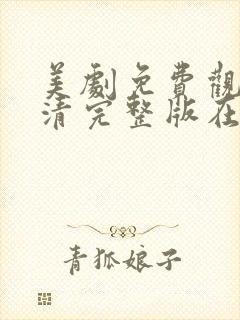 美劇免費觀
清完整版在
青狐娘子